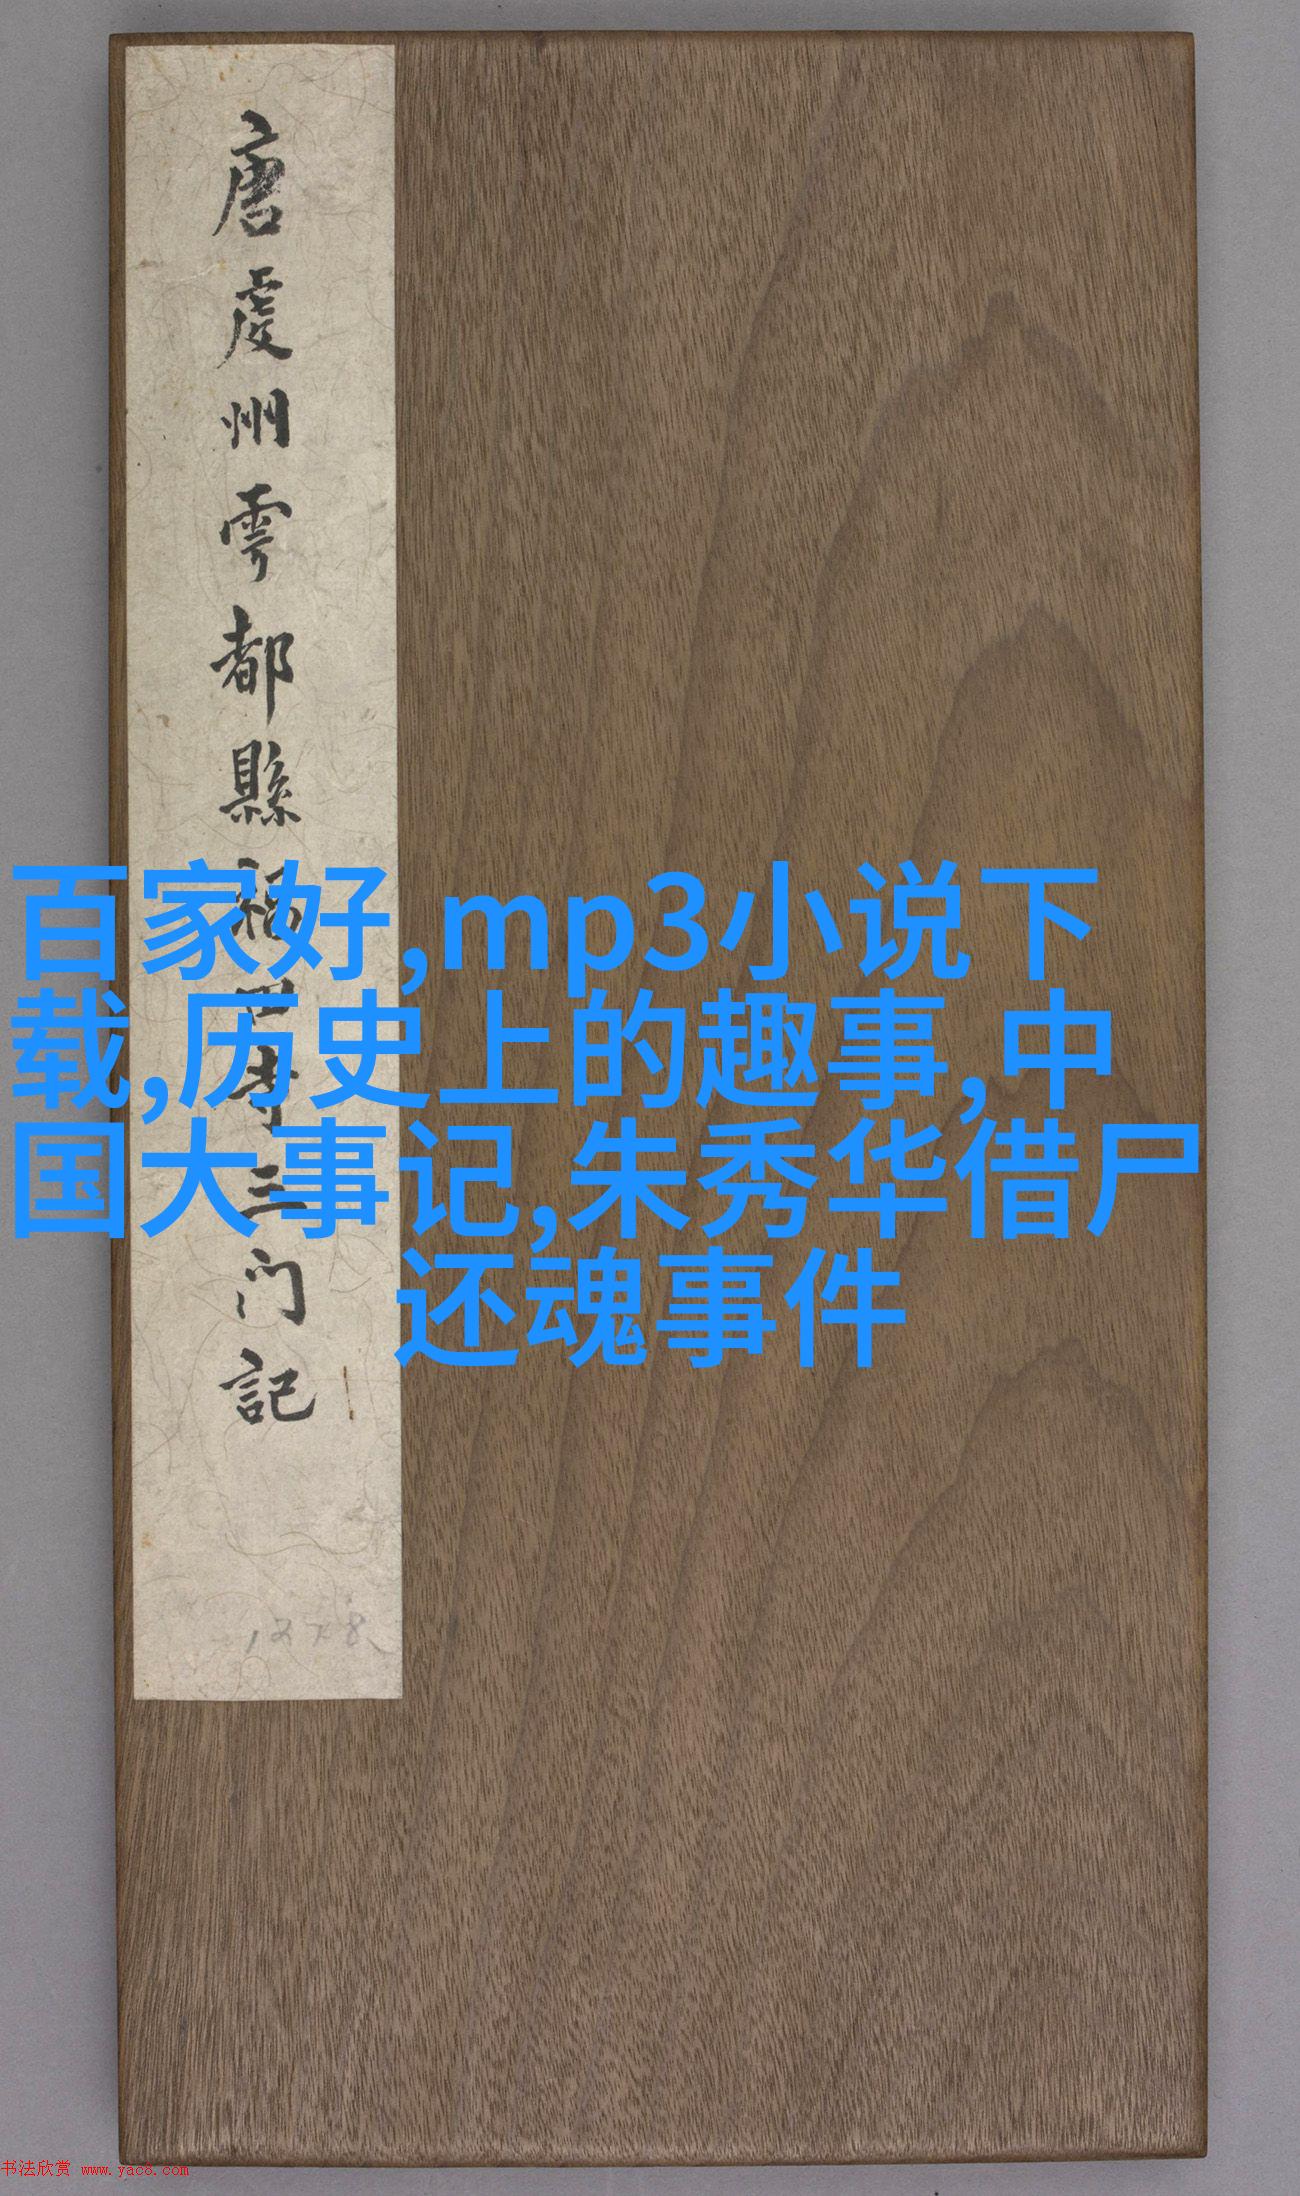 唐虔州雩都縣福田寺三门記
百家好,mp3小说下
载,历史上的趣事,中
国大事记,朱秀华借尸
还魂事件
书法欣赏 www.yac8.com